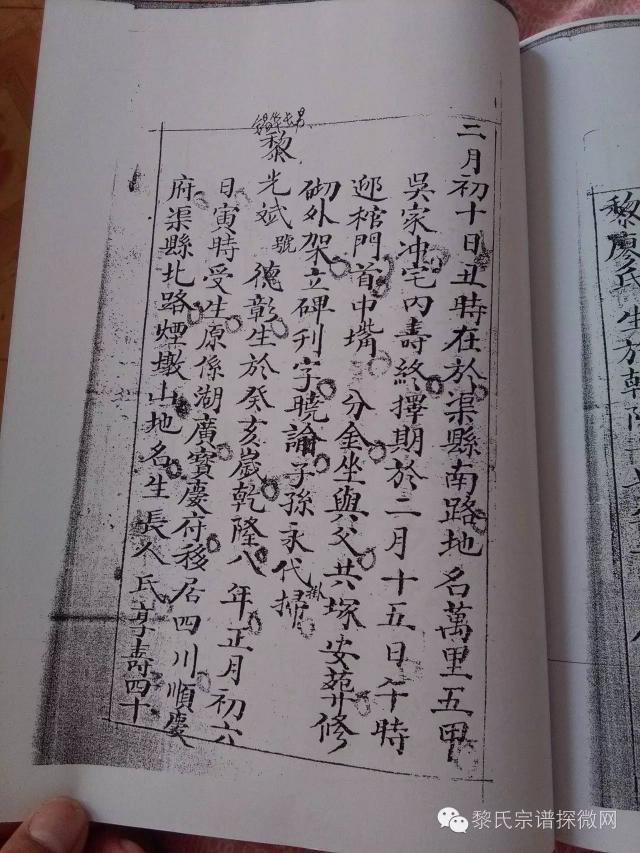 二月初十日丑時在於渠縣南路地名萬里五甲
吳家冲宅内壽終擇期於二月十五日午時
迎棺門首中嘴 分金坐與父共塚安葬修
砌外架立碑刊字曉諭子孫永代掛掃
黎光斌號德彰生於癸亥歲乾隆八年正月初六
日寅時受生原係湖廣寶慶府移居四川順慶
府渠縣北路煙墩山地名生長人氏享壽四十
黎廖氏生於乾隆
黎氏宗谱探微网